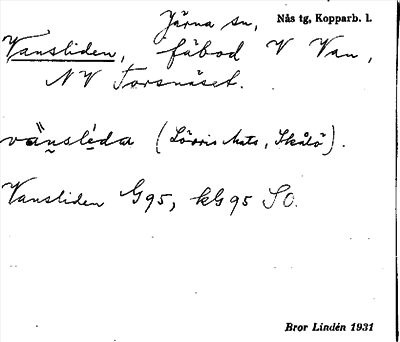 Järna sn, Nås tg, Kopparb. l.
Vansliden, fäbod V Van,
NV Torsnäset.
vänsléda (Lövris Mats, Skålö).
Vansliden G95, kG95 SO.
Bror Lindén 1931